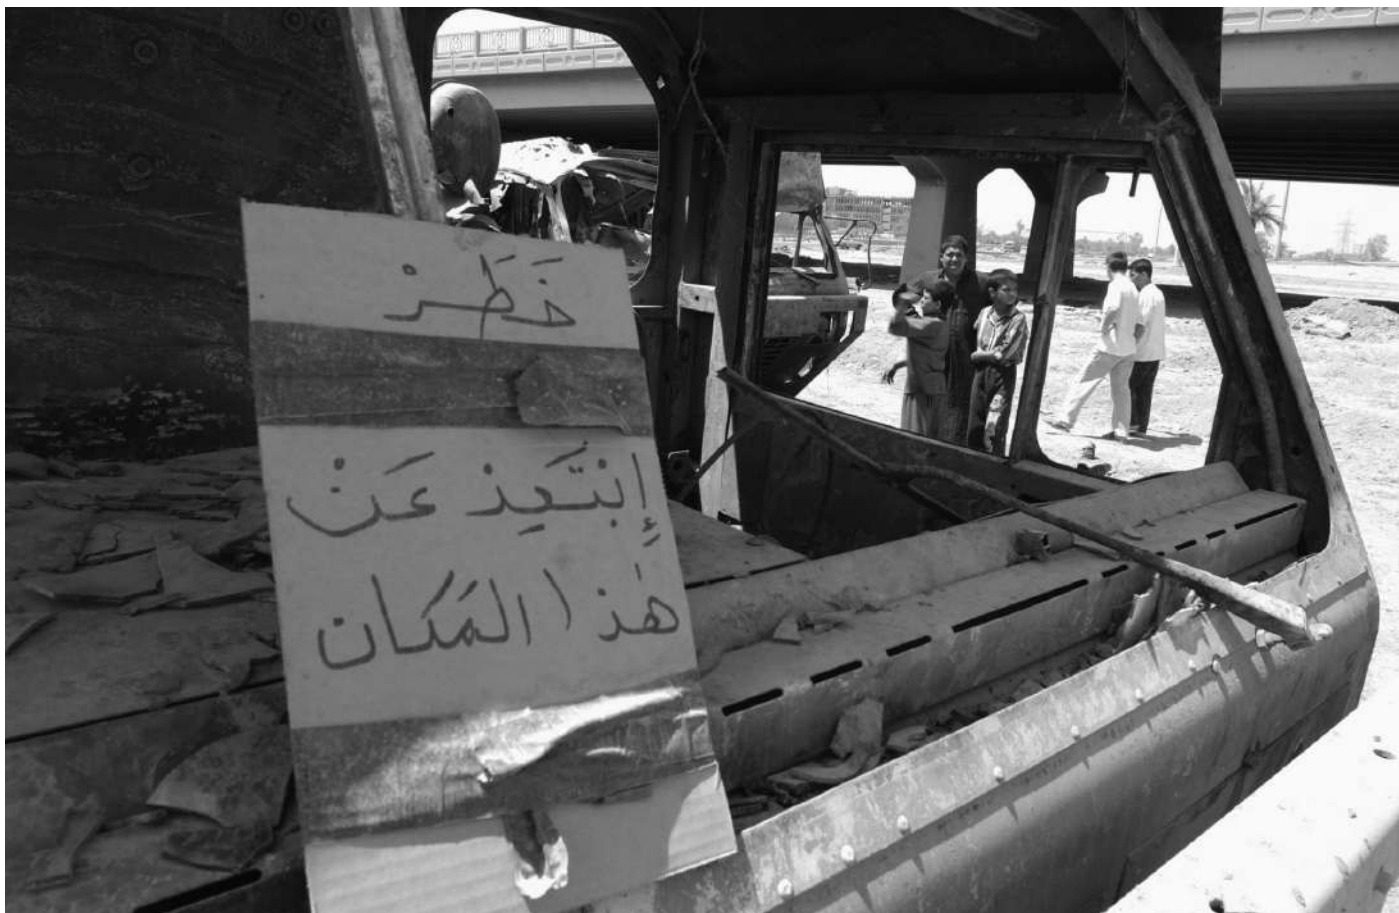 خَطَرْ
إبْتَعِدْ عَنْ
هٰذا المَكان